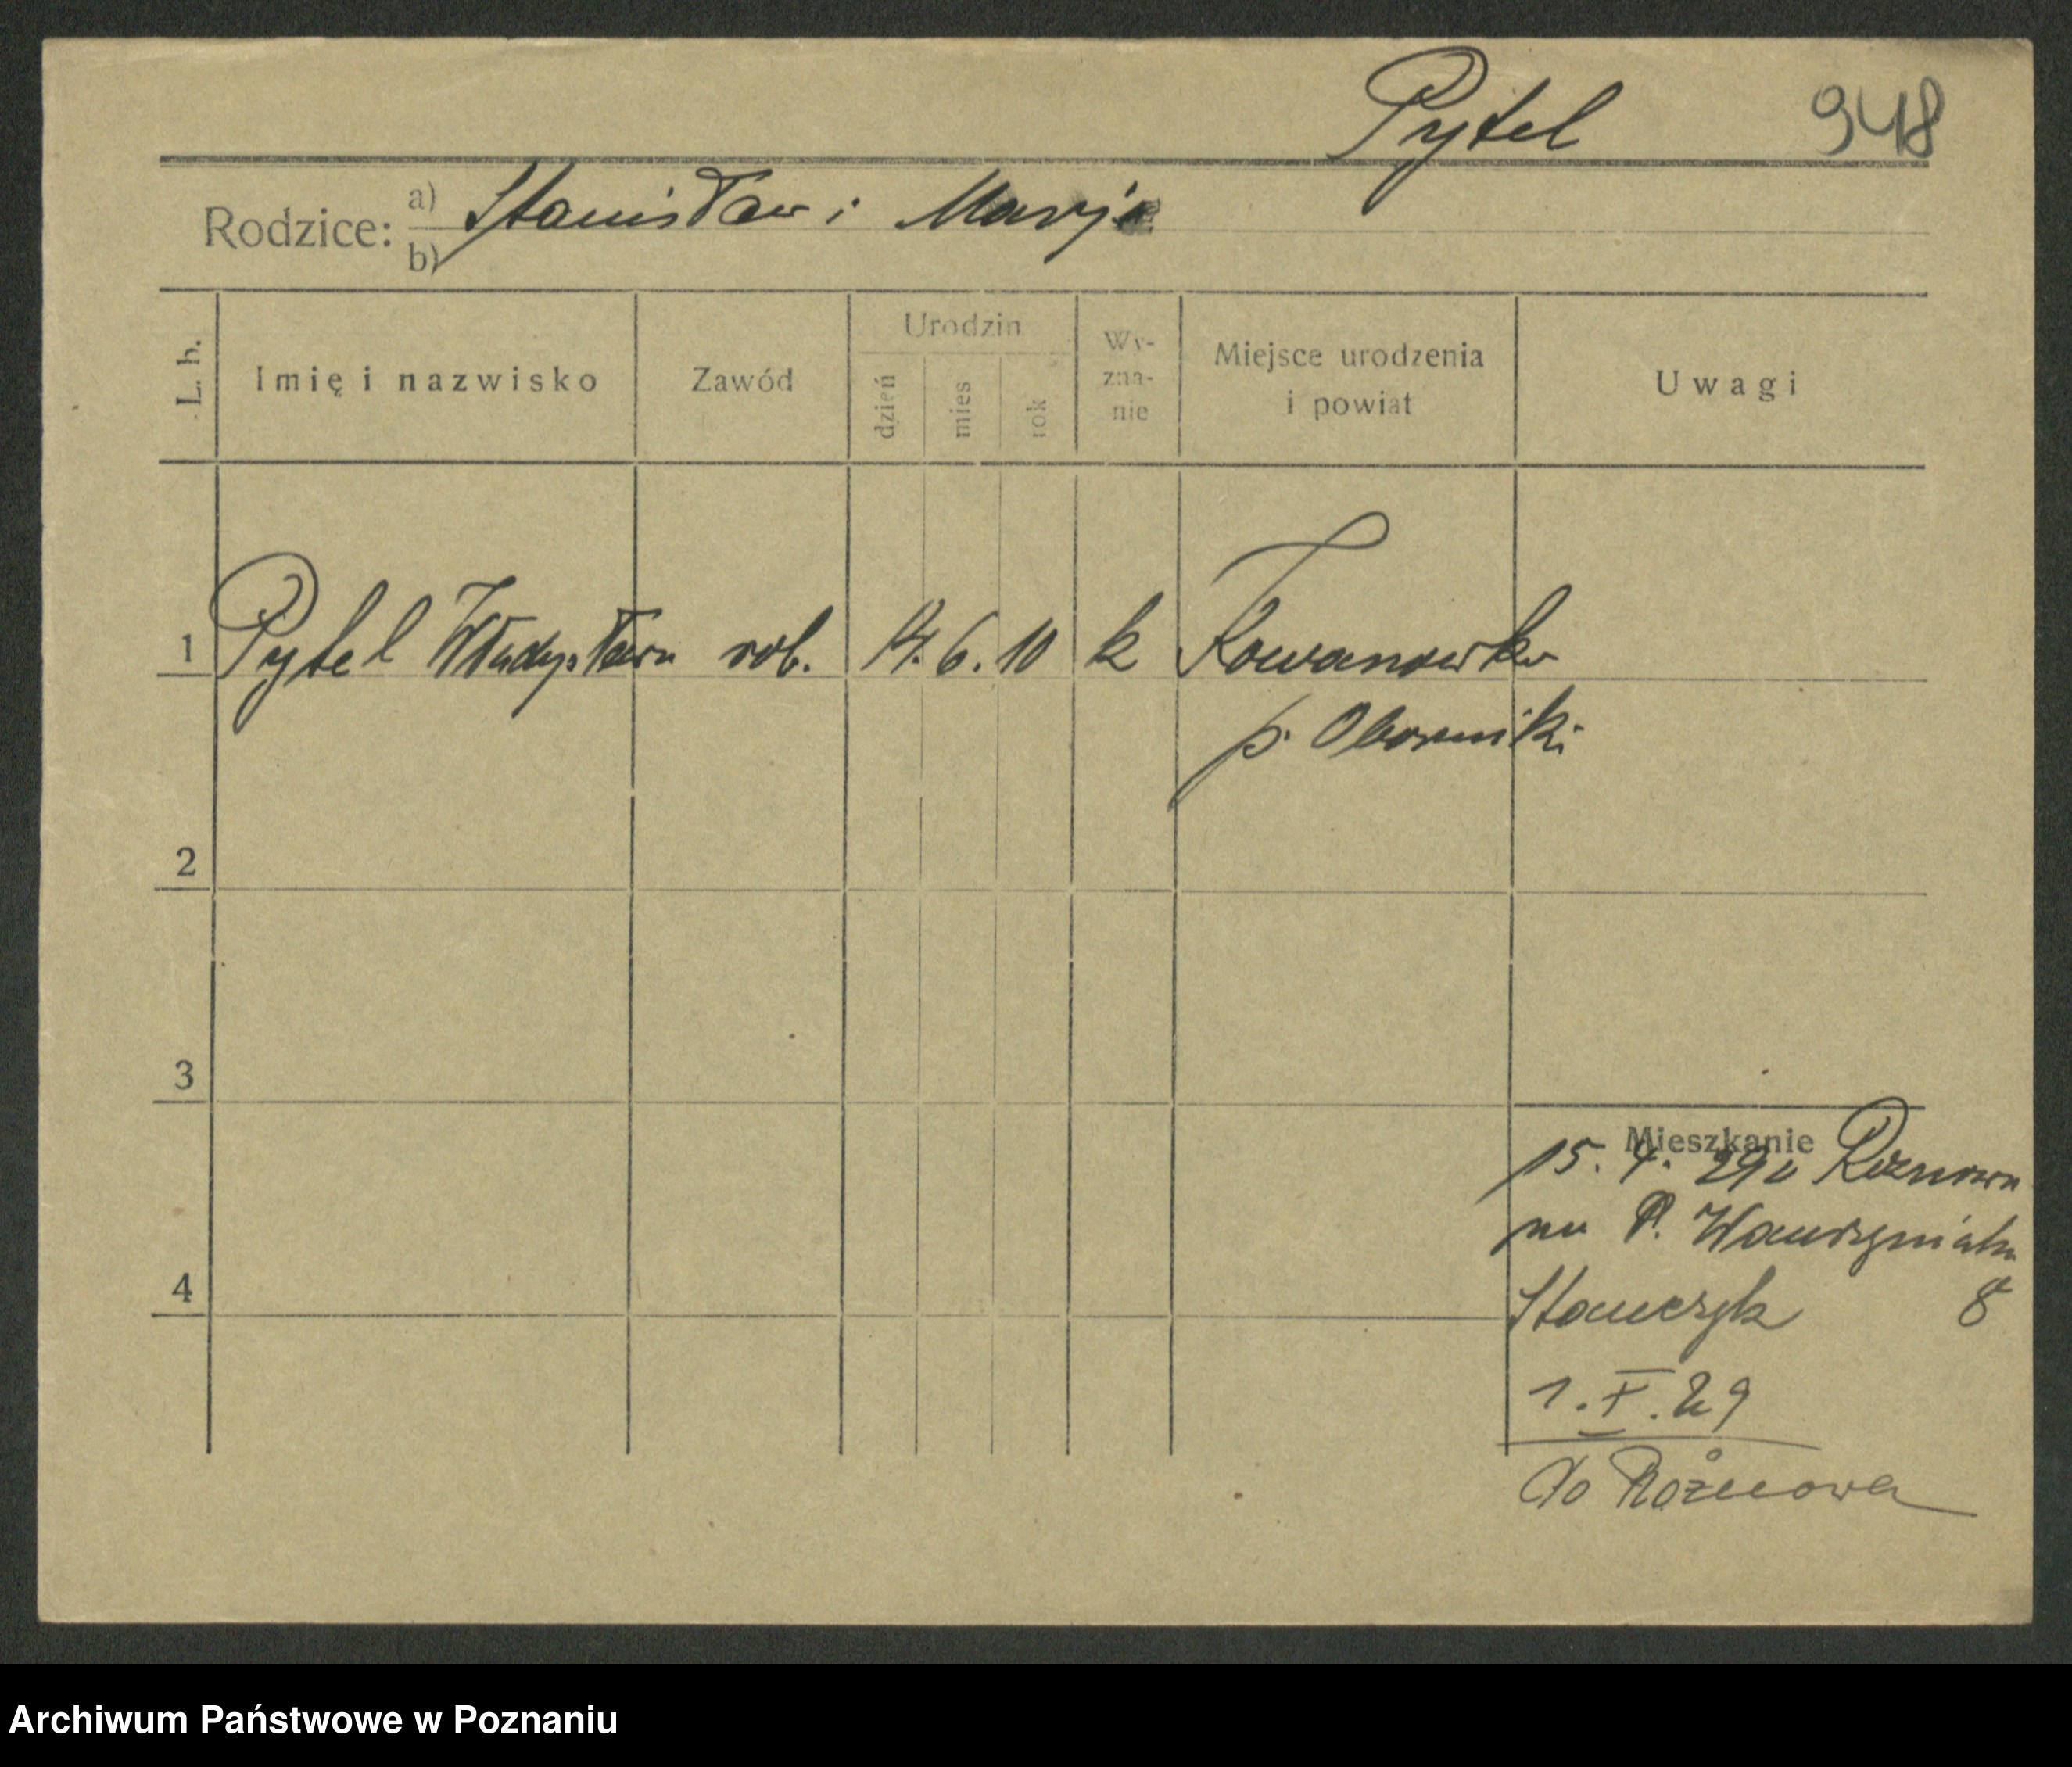 Pytel 948
Rodzice: a) Stanisław i Marja
b)
L. b. Imię i nazwisko Zawód Urodzin dzień mies rok Wy-zna-nie Miejsce urodzenia i powiat Uwagi
1 Pytel Władysława rob. 14. 6. 10 k Kowanówko
p. Oborniki
2
3
4
Mieszkanie
15. 4. 29 Rożnowa
P. Wawrzyniaka
Stawczyk 8
1. X. 29
do Rożnowa
Archiwum Państwowe w Poznaniu